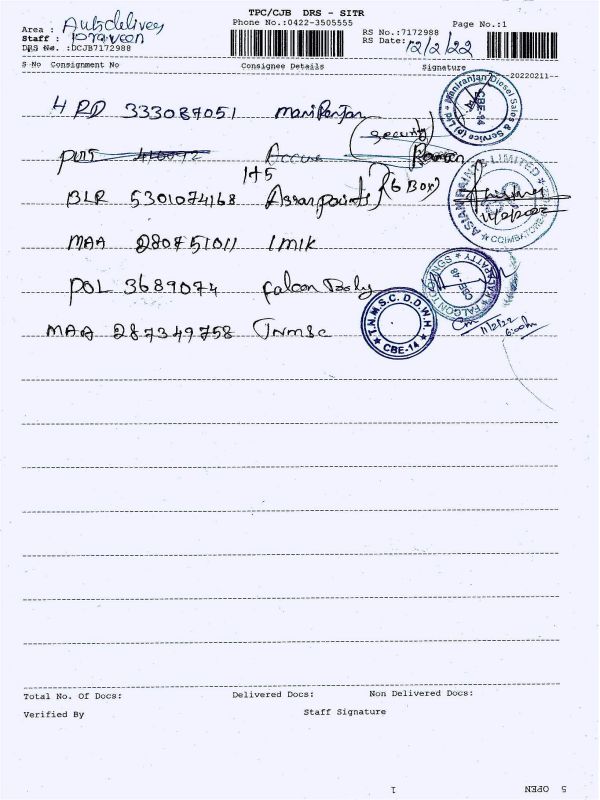 TPC/CJB DRS - SITR
Area : Autodelivery
Phone No.:0422-3505555
Page No.:1
Staff : praveen
RS No.:7172988
DRS No. :DCJB7172988
RS Date: 12/2/22
S No Consignment No Consignee Details Signature
--20220211--
4 RD 333087051 ManiRanjan
Maniranjan Diesel Sales & Service (p) Ltd
CBE-14
(Security)
1+5
BLR 5301074168 Asian paints (6 Box)
ASIAN PAINTS LIMITED
COIMBATORE
MAA 280751011 1mlk
POL 3689074 Falcon
FALCON
CBE-48
MAA 287349758 TNMSC
T.N.M.S.C. D.D.W.H.
CBE-14
11/2/22
Total No. Of Docs: Delivered Docs: Non Delivered Docs:
Verified By Staff Signature
1
5 OPEN